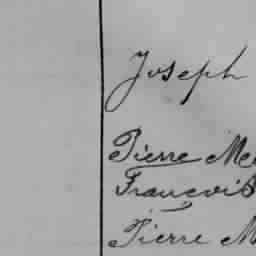 Joseph
Pierre Me
François
Pierre M